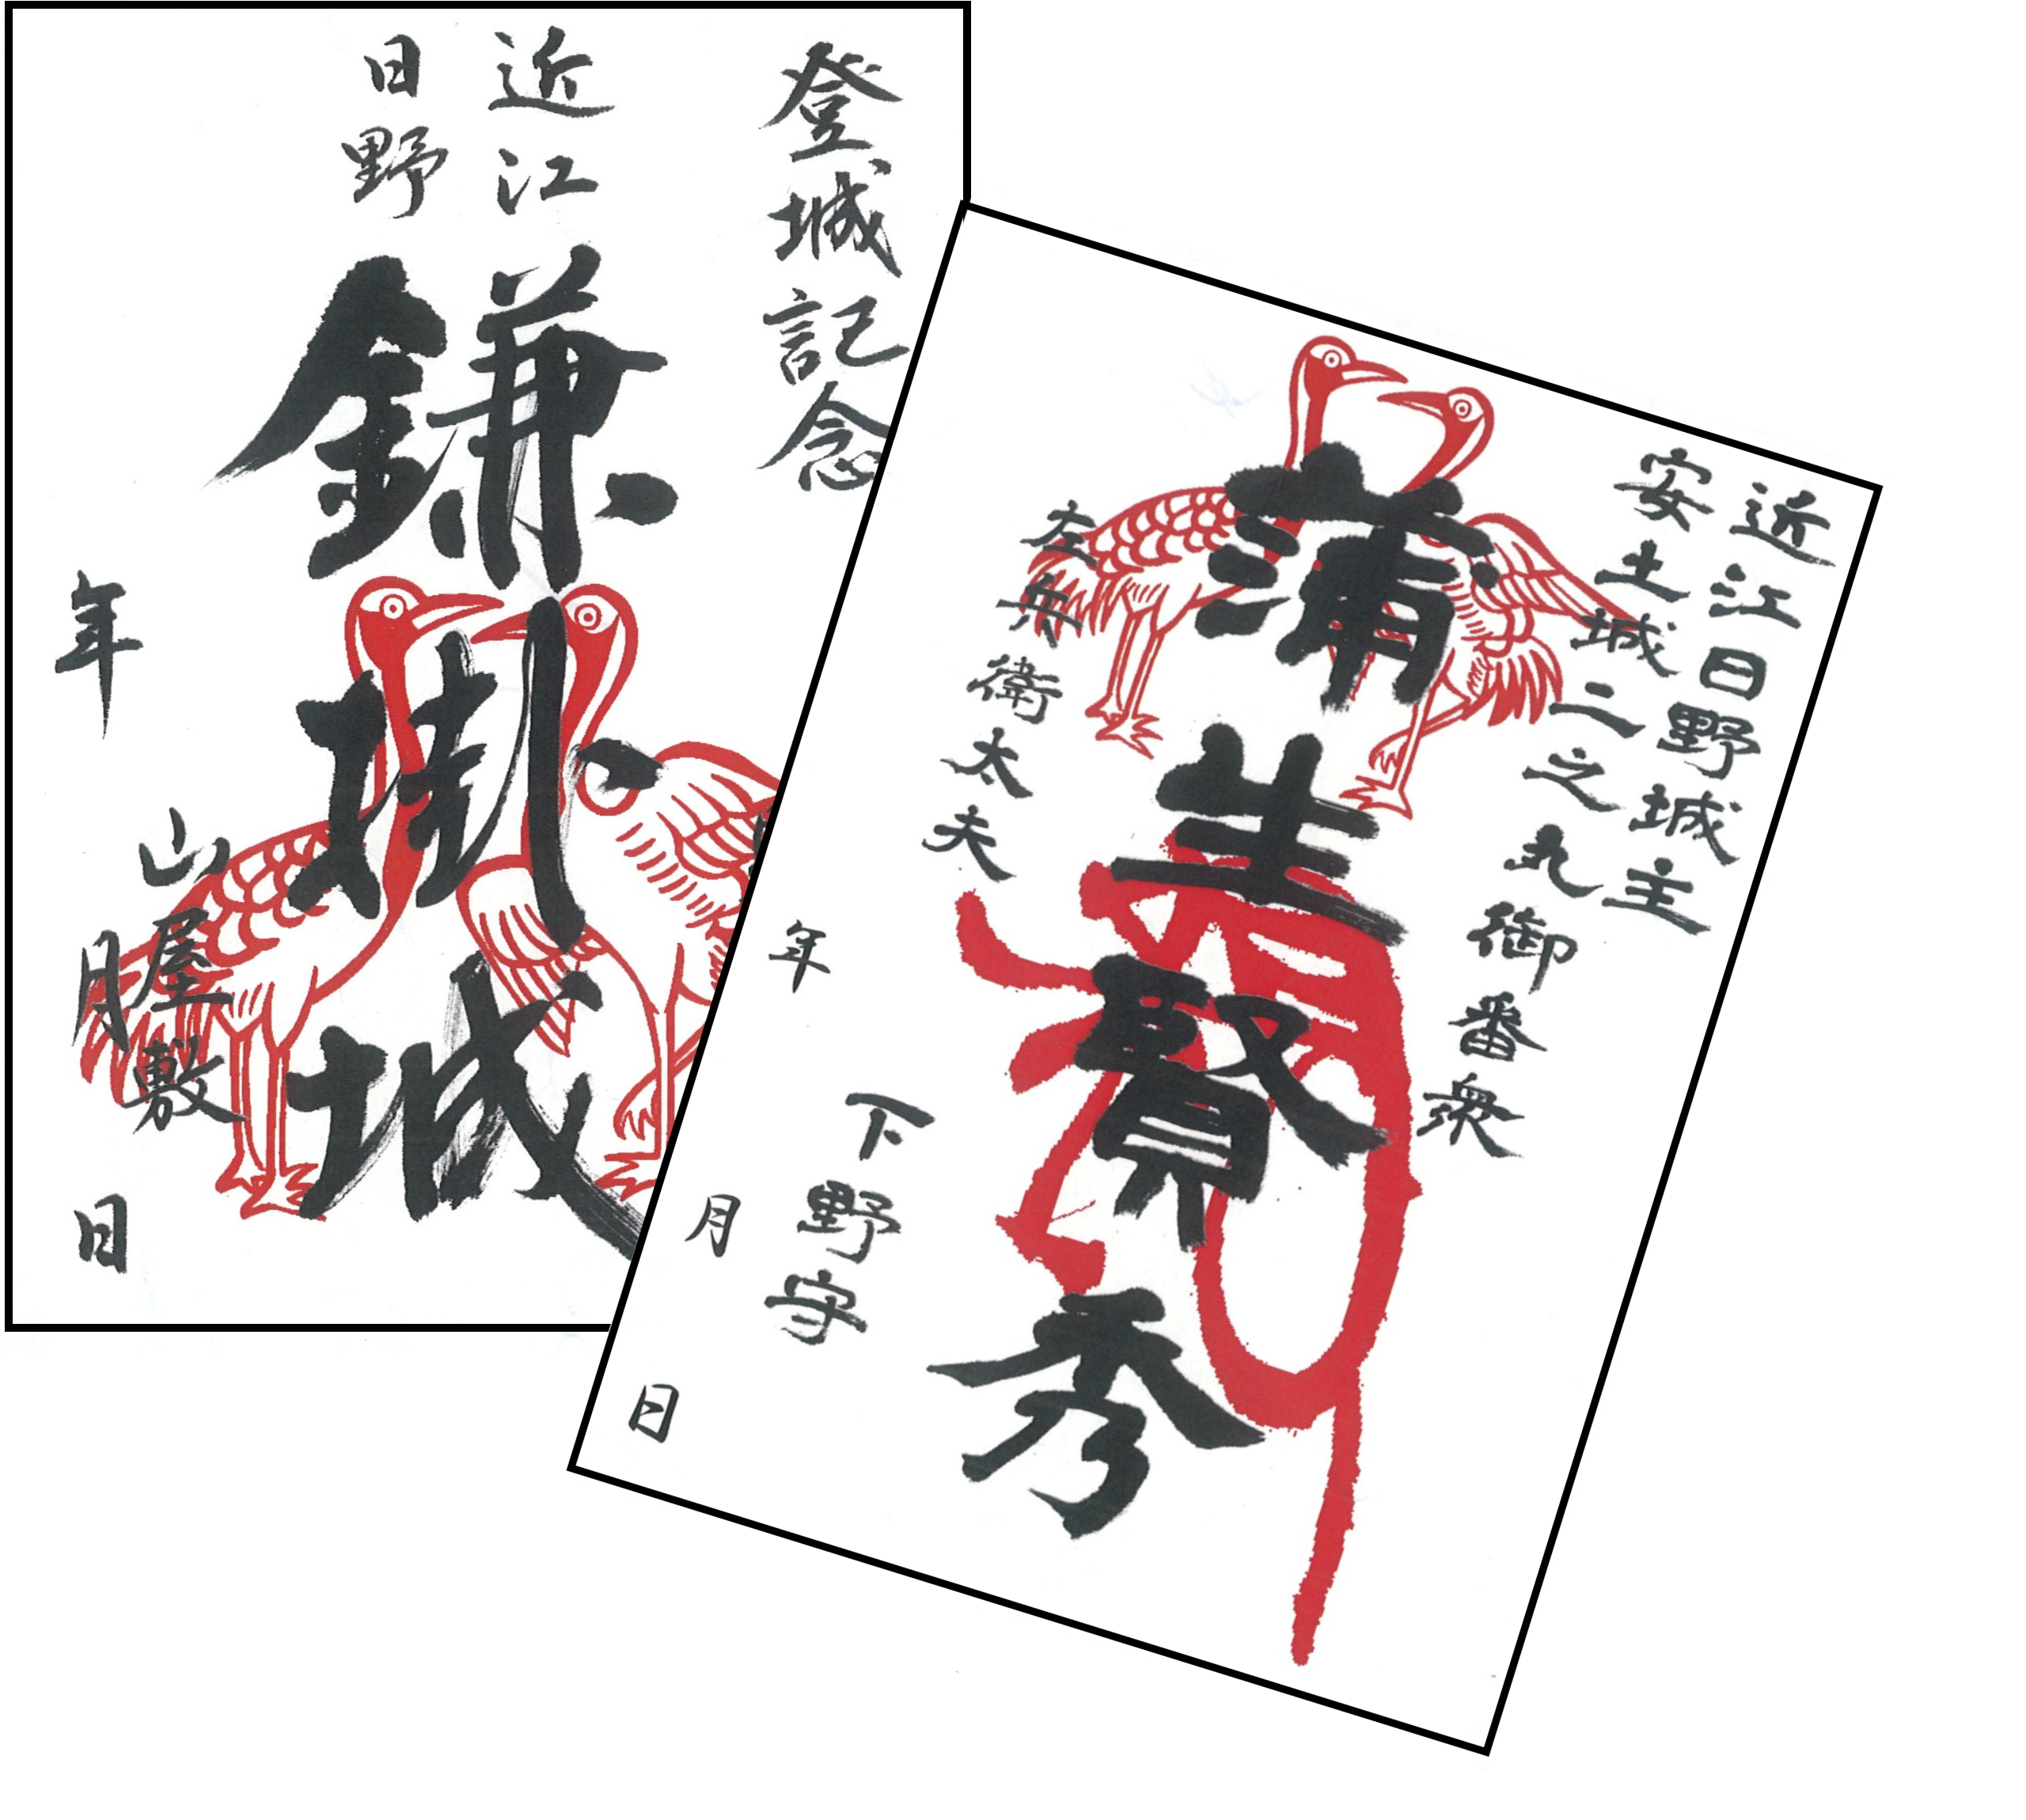 登城記念
近江
日野
鎌掛城
山屋敷
年
月
日
近江日野城主
安土城二之丸御番衆
蒲生賢秀
左兵衛太夫
下野守
年
月
日